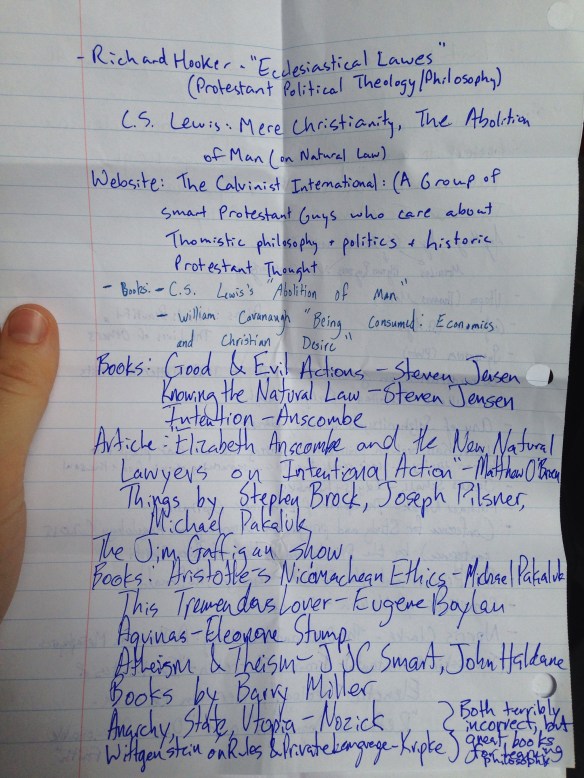 - Richard Hooker - "Ecclesiastical Lawes"
(Protestant Political Theology/Philosophy)
C.S. Lewis: Mere Christianity, The Abolition
of Man (on Natural Law)
Website: The Calvinist International: (A Group of
smart Protestant Guys who care about
Thomistic philosophy + politics + historic
Protestant Thought
- Books: - C.S. Lewis's "Abolition of Man"
- William Cavanaugh "Being Consumed: Economics
and Christian Desire"
Books: Good & Evil Actions - Steven Jensen
Knowing the Natural Law - Steven Jensen
Intention - Anscombe
Article: "Elizabeth Anscombe and the New Natural
Lawyers on Intentional Action" - Matthew O'Brien
Things by Stephen Brock, Joseph Pilsner,
Michael Pakaluk
The Jim Gaffigan show
Books: Aristotle's Nicomachean Ethics - Michael Pakaluk
This Tremendous Lover - Eugene Boylan
Aquinas - Eleonore Stump
Atheism & Theism - JJC Smart, John Haldane
Books by Barry Miller
Anarchy, State, Utopia - Nozick
Wittgenstein on Rules & Private Language - Kripke
Both terribly
incorrect, but
great books
for learning
philosophy